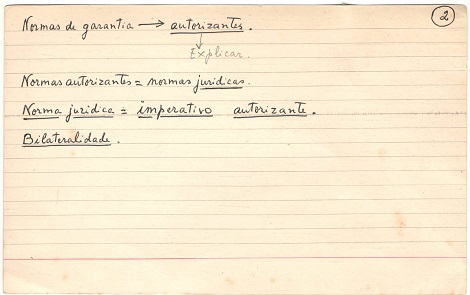 2
Normas de garantia → autorizantes.
↓
Explicar.
Normas autorizantes = normas jurídicas.
Norma jurídica = imperativo autorizante.
Bilateralidade.